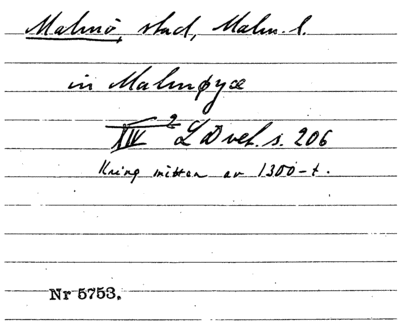 Malmö, stad, Malm. l.
in Malmøyæ
XIV 2 LDvet. s. 206
Kring mitten av 1300-t.
Nr 5753.